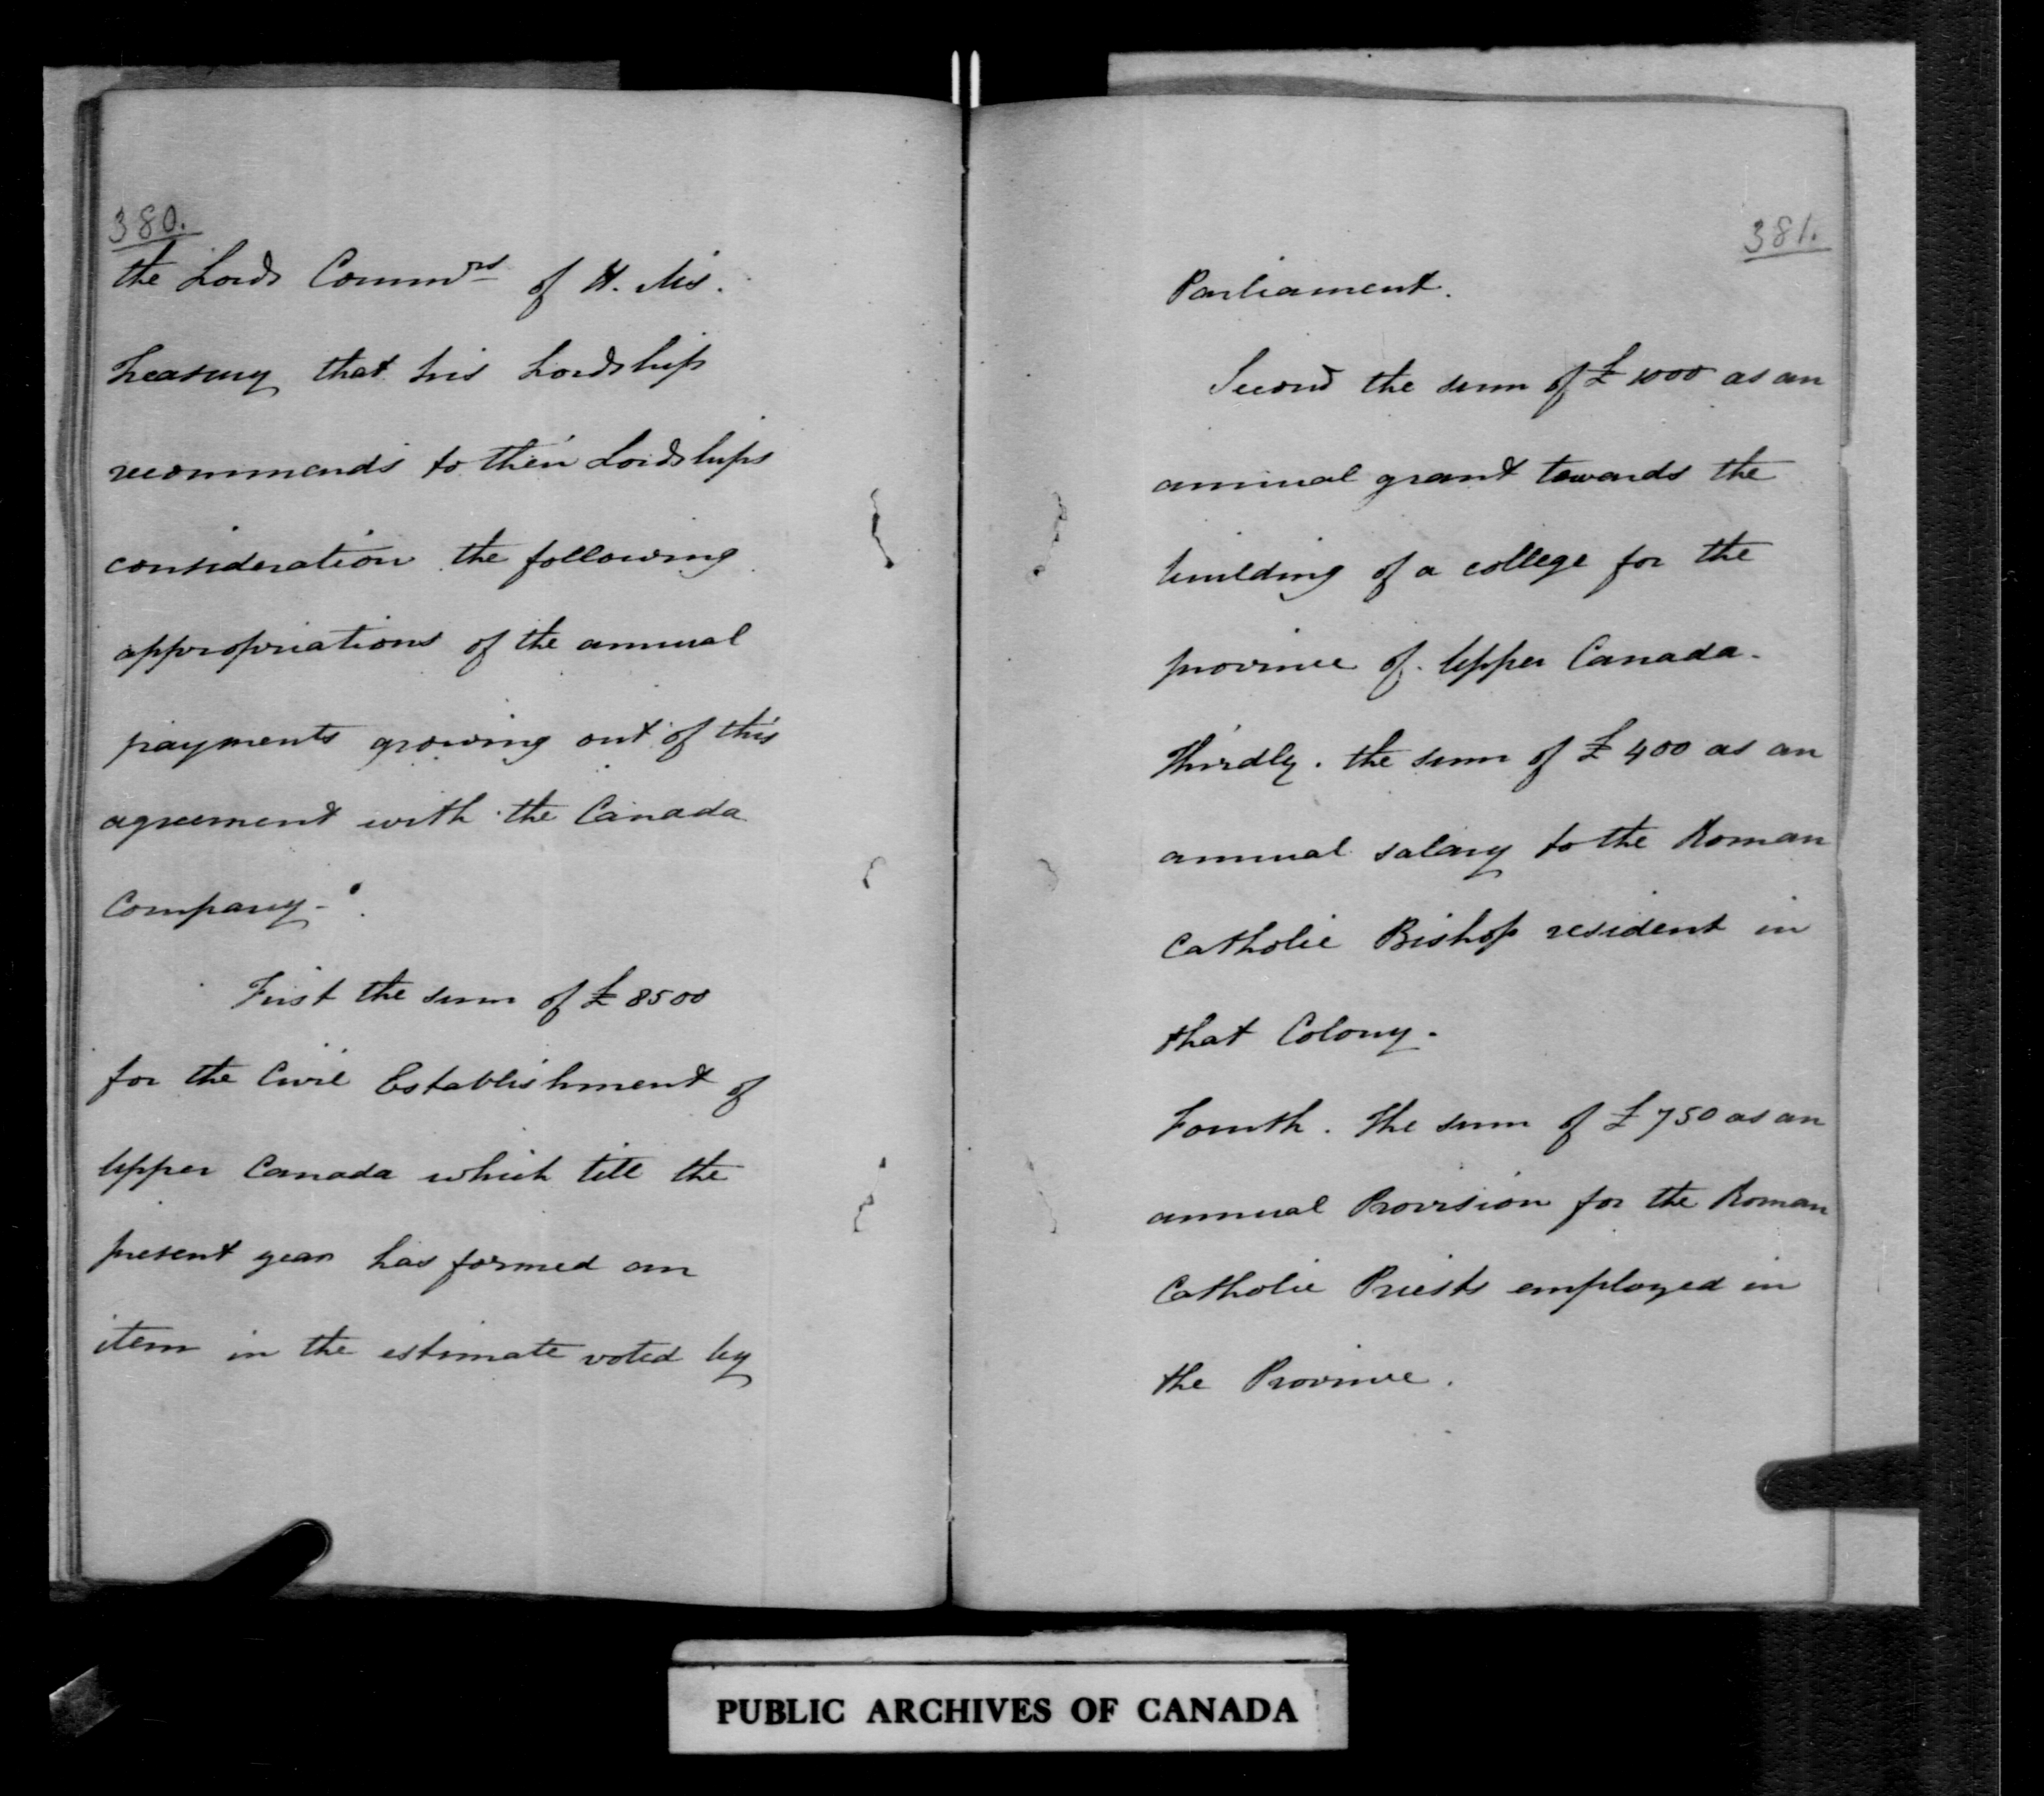 380.
the Lords Commrs of H. Ms.
Treasury that his Lordship
recommends to their Lordships
consideration the following
appropriations of the annual
payments growing out of this
agreement with the Canada
Company-
First the sum of £8500
for the Civil Establishment of
Upper Canada which till the
present year has formed an
item in the estimate voted by
381.
Parliament.
Second the sum of £1000 as an
annual grant towards the
building of a college for the
province of Upper Canada-
Thirdly. the sum of £400 as an
annual salary to the Roman
Catholic Bishop resident in
that Colony-
Fourth. The sum of £750 as an
annual Provision for the Roman
Catholic Priests employed in
the Province.
PUBLIC ARCHIVES OF CANADA